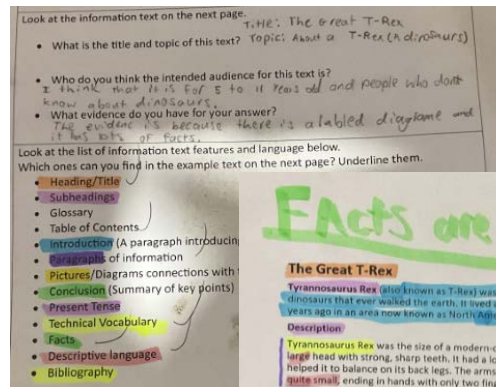 Look at the information text on the next page.
Title: The Great T-Rex
• What is the title and topic of this text? Topic: About a T-Rex (A dinosaurs)
• Who do you think the intended audience for this text is?
I think that it is for 5 to 11 years old and people who dont
know about dinosaurs.
• What evidence do you have for your answer?
The evidenc is because there is a labled diagrame and
it has lots of facts.
Look at the list of information text features and language below.
Which ones can you find in the example text on the next page? Underline them.
• Heading/Title
• Subheadings
• Glossary
• Table of Contents
• Introduction (A paragraph introducing
• Paragraphs of information
• Pictures/Diagrams connections with
• Conclusion (Summary of key points)
• Present Tense
• Technical Vocabulary
• Facts
• Descriptive language
• Bibliography
FActs are
The Great T-Rex
Tyrannosaurus Rex (also known as T-Rex) was
dinosaurs that ever walked the earth. It lived
years ago in an area now known as North
Description
Tyrannosaurus Rex was the size of a modern-
large head with strong, sharp teeth. It had a
helped it to balance on its back legs. The arms
quite small, ending in hands with only two